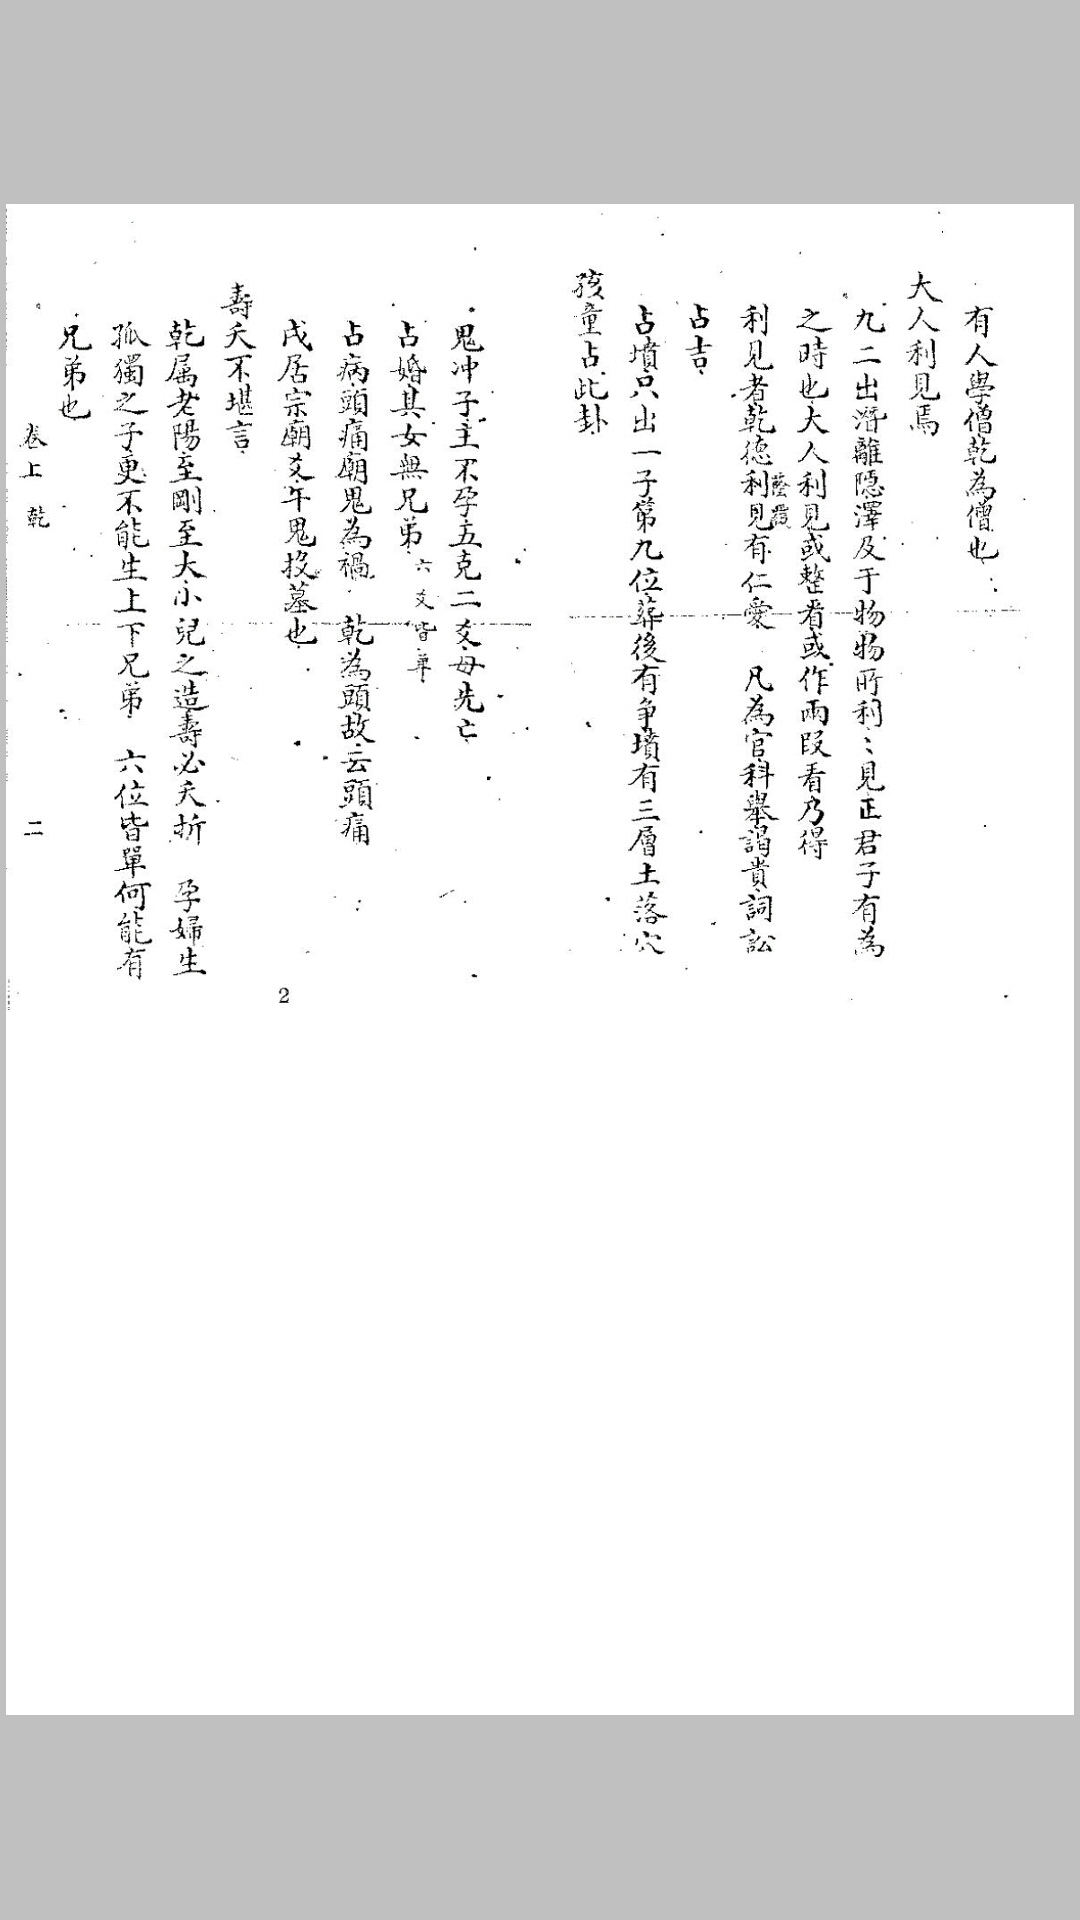 有人學僧乾為僧也
大人利見焉
九二出潛離隱澤及于物物所利〻見正君子有為
之時也大人利見或整看或作兩段看乃得
利見者乾德利見有仁愛　凡為官科舉謁貴詞訟
占吉
占墳只出一子第九位葬後有爭墳有三層土落穴
孩童占此卦
鬼冲子主不孕五克二爻母先亡
占婚其女無兄弟 六爻皆單
占病頭痛廟鬼為禍　乾為頭故云頭痛
戌居宗廟爻午鬼投墓也
壽夭不堪言
乾属老陽至剛至大小兒之造壽必夭折　孕婦生
孤獨之子更不能生上下兄弟　六位皆單何能有
兄弟也
卷上 乾 二
2